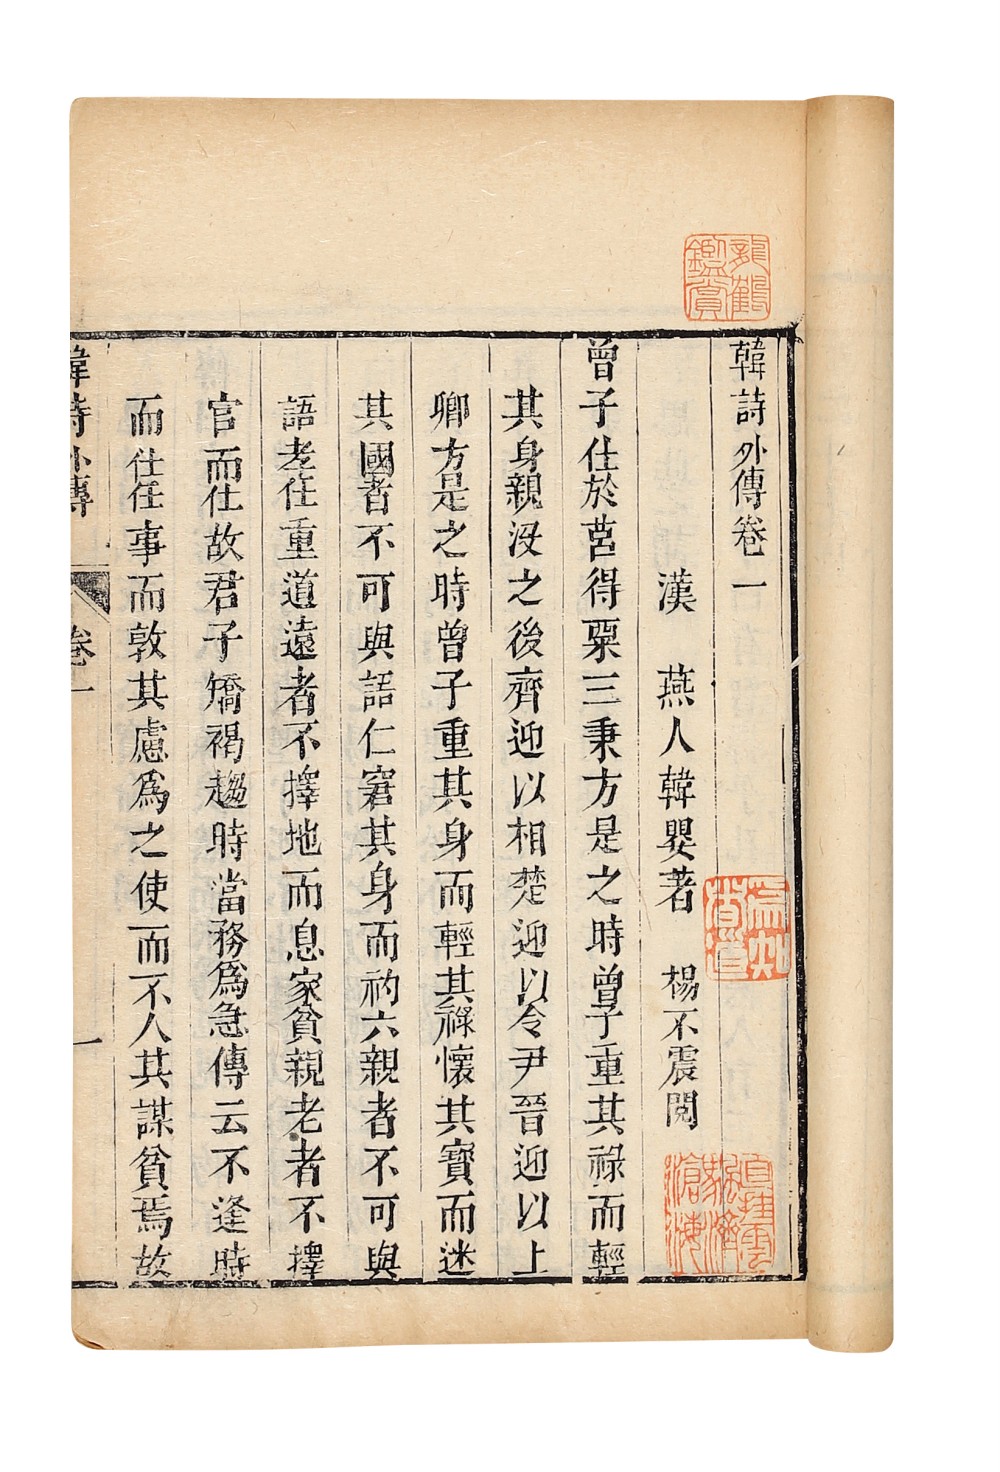 韓詩外傳卷一
漢　燕人韓嬰著　楊不震閱
曾子仕於莒得粟三秉方是之時曾子重其祿而輕
其身親沒之後齊迎以相楚迎以令尹晉迎以上
卿方是之時曾子重其身而輕其祿懷其寶而迷
其國者不可與語仁窘其身而礿六親者不可與
語孝任重道遠者不擇地而息家貧親老者不擇
官而仕故君子矯褐趨時當務爲急傳云不逢時
而仕任事而敦其慮爲之使而不入其謀貧焉故
韓詩外傳
卷一
一
龍鶴鑑賞
直挂雲帆濟滄海